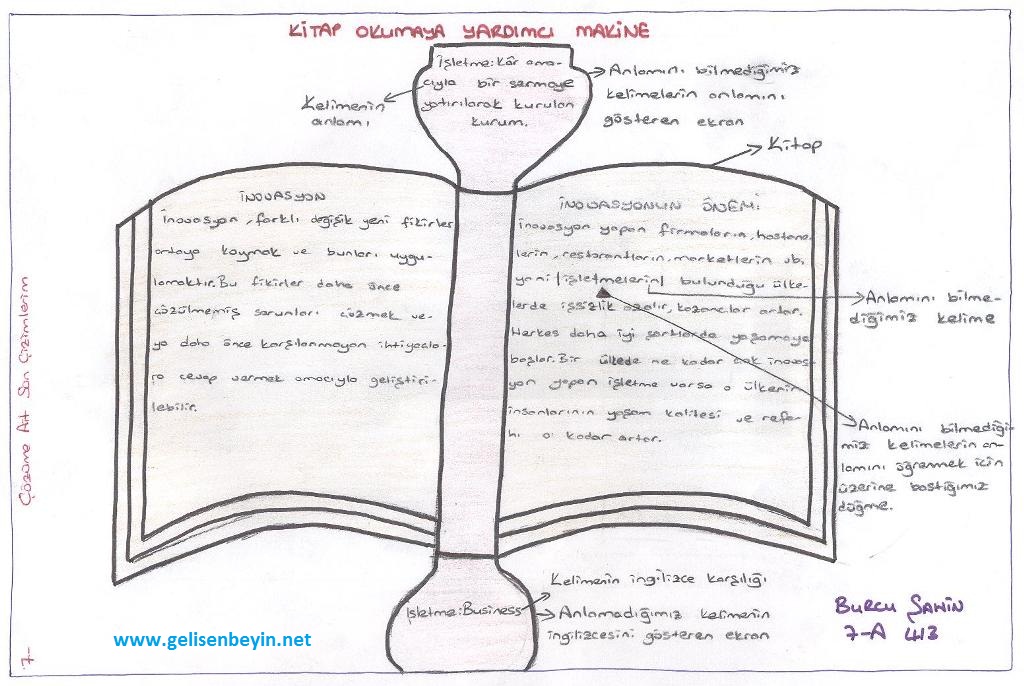 KİTAP OKUMAYA YARDIMCI MAKİNE
İşletme: Kâr ama-
cıyla bir sermaye
yatırılarak kurulan
kurum.
Kelimenin
anlamı
Anlamını bilmediğimiz
kelimelerin anlamını
gösteren ekran
Kitap
İNOVASYON
İnovasyon, farklı değişik yeni fikirler
ortaya koymak ve bunları uygu-
lamaktır. Bu fikirler daha önce
çözülmemiş sorunları çözmek ve-
ya daha önce karşılanmayan ihtiyaçla-
ra cevap vermek amacıyla geliştiri-
lebilir.
İNOVASYONUN ÖNEMİ:
İnovasyon yapan firmaların, hastane-
lerin, restorantların, marketlerin vb.
yani |işletmelerin| bulunduğu ülke-
lerde işsizlik azalır, kazançlar artar.
Herkes daha iyi şartlarda yaşamaya
başlar. Bir ülkede ne kadar çok inovas-
yon yapan işletme varsa o ülkenin
insanlarının yaşam kalitesi ve refa-
hı o kadar artar.
Anlamını bilme-
diğimiz kelime
Anlamını bilmediği-
miz kelimelerin an-
lamını öğrenmek için
üzerine bastığımız
düğme.
İşletme: Business
Kelimenin ingilizce karşılığı
Anlamadığımız kelimenin
ingilizcesini gösteren ekran
BURCU ŞAHİN
7-A 413
www.gelisenbeyin.net
Çözüme Ait Son Çizimlerim
-7-